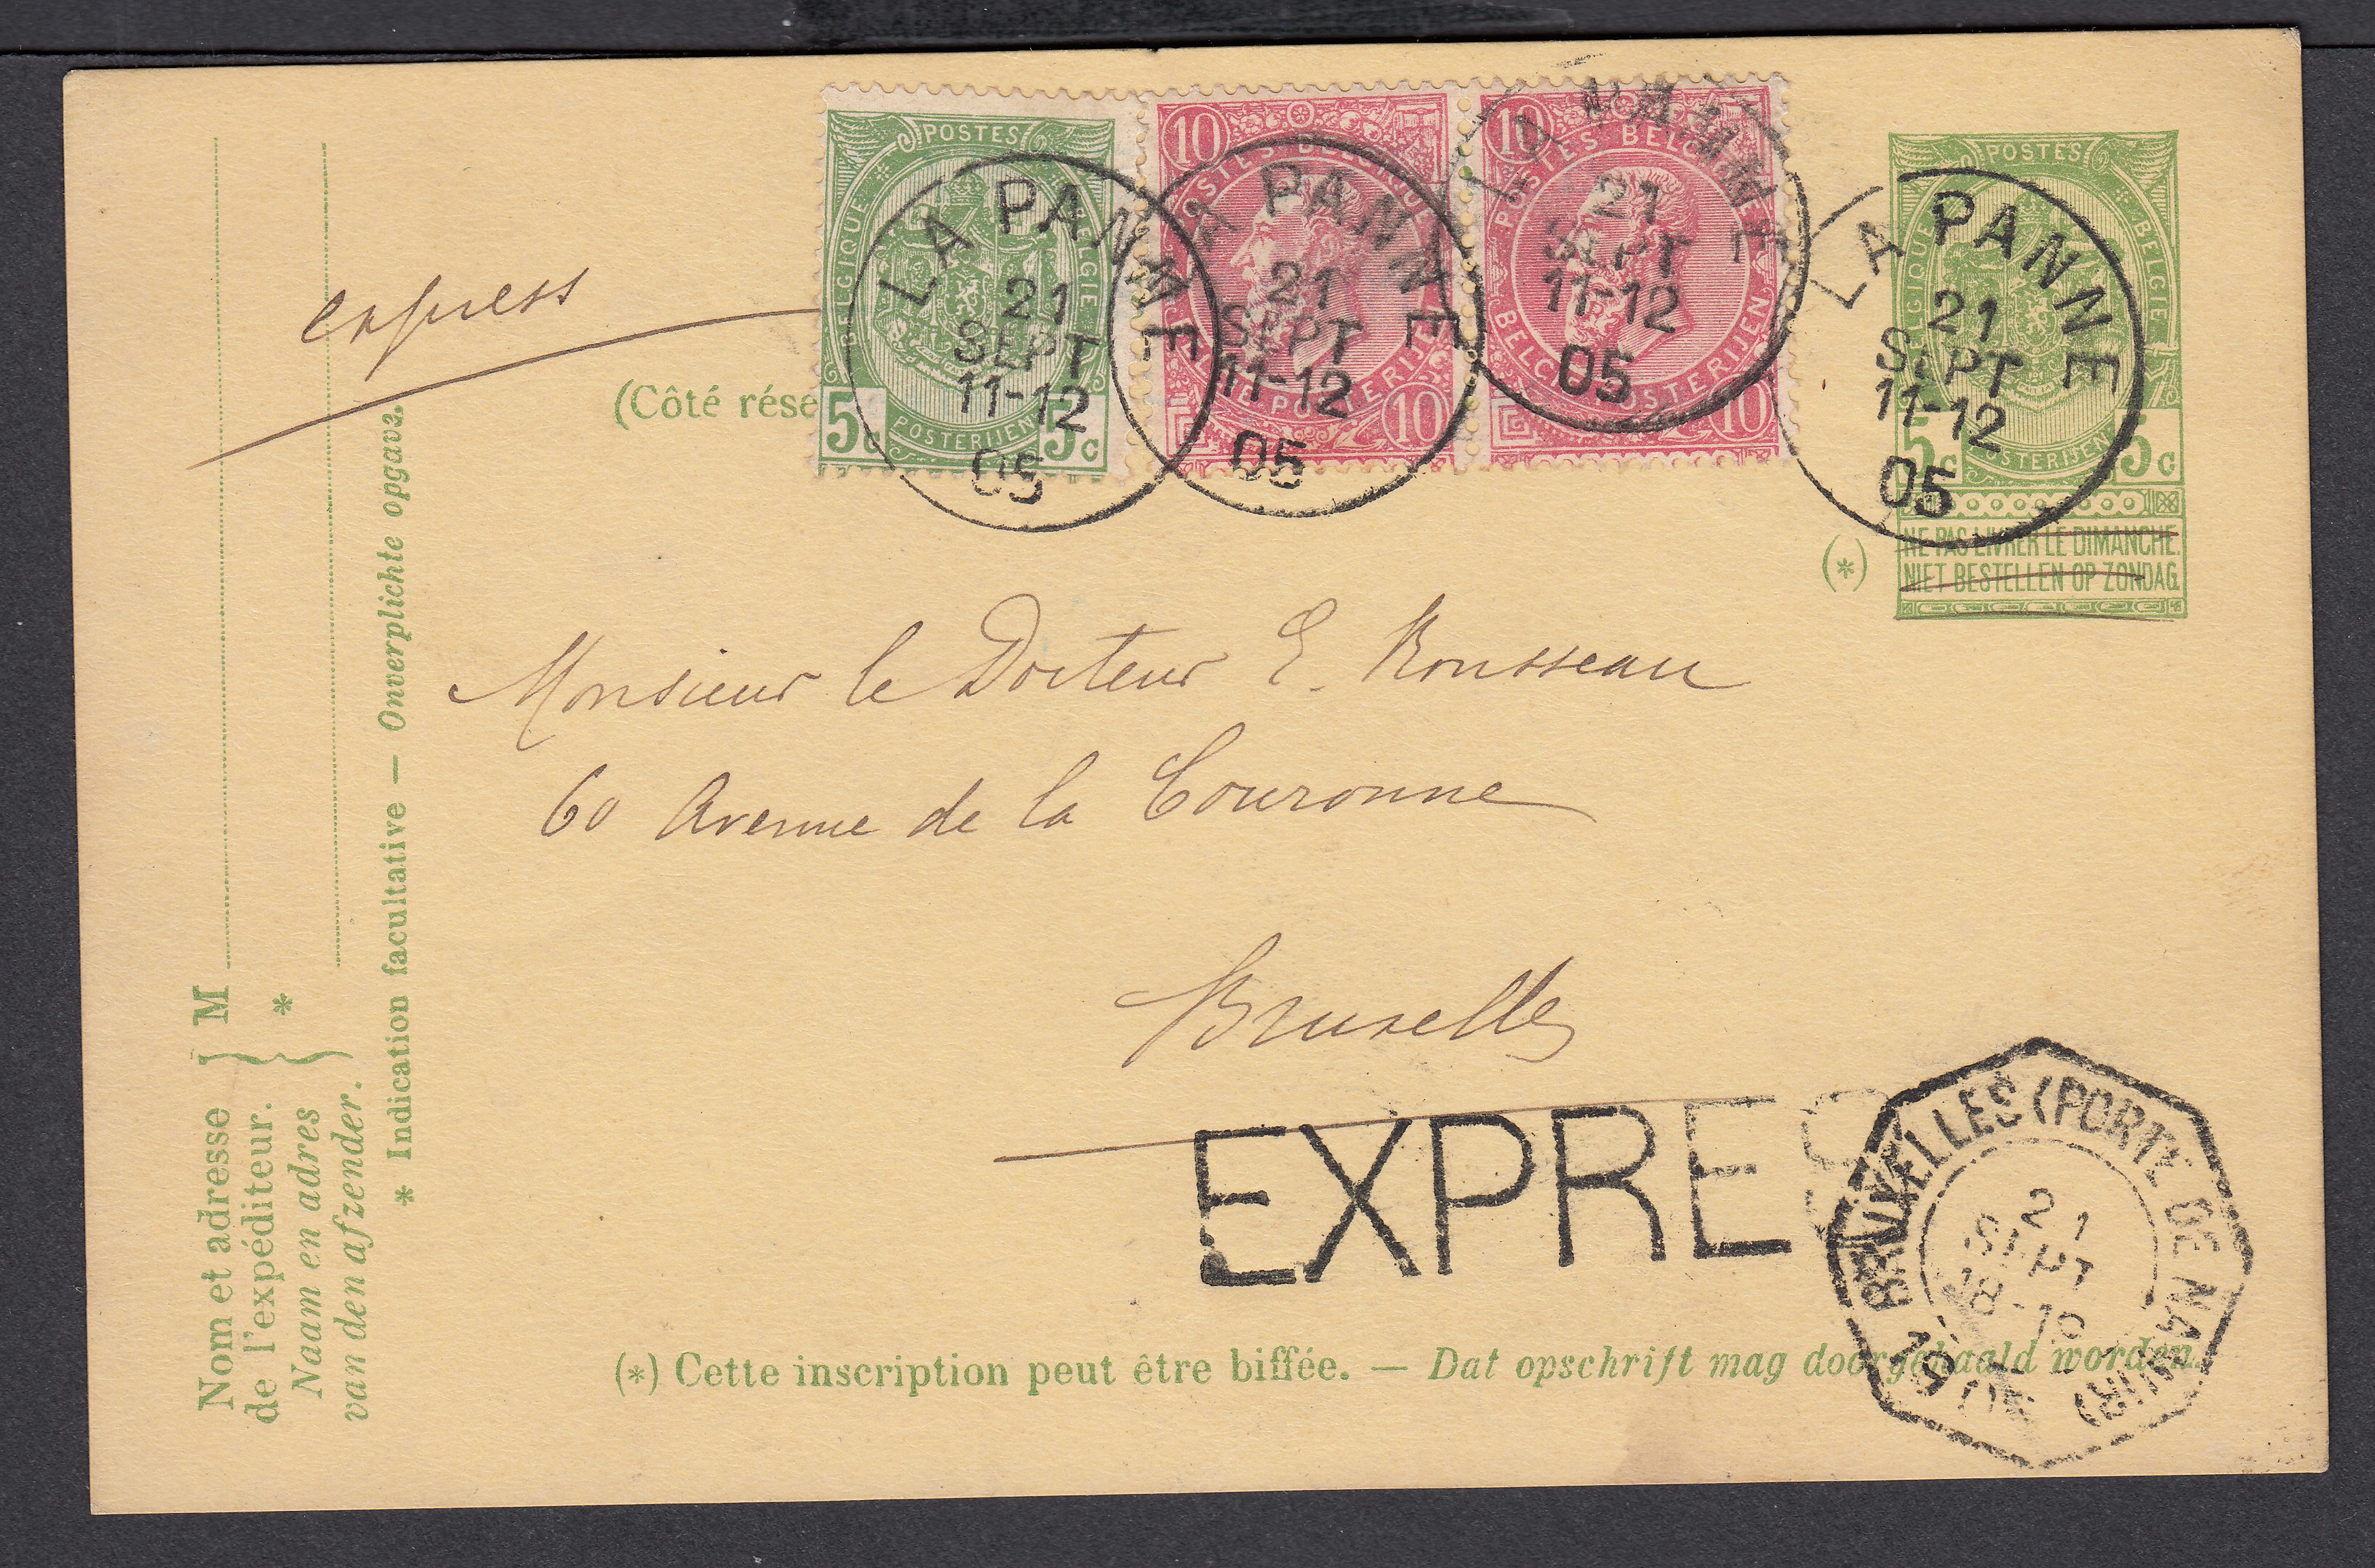 POSTES
BELGIQUE BELGIE
5c 5c
POSTERIJEN
LA PANNE
21
SEPT
11-12
05
10 10
POSTES BELGIQUE
BELGIE POSTERIJEN
10
LA PANNE
21
SEPT
11-12
05
10
POSTES BELGIQUE
POSTERIJEN
10
21
SEPT
11-12
05
POSTES
BELGIQUE BELGIE
5c 5c
POSTERIJEN
LA PANNE
21
SEPT
11-12
05
NE PAS LIVRER LE DIMANCHE.
NIET BESTELLEN OP ZONDAG.
(*)
express
(Côté rése
Monsieur le Docteur E. Rousseau
60 Avenue de la Couronne
Bruxelles
EXPRES
BRUXELLES (PORTE DE NAMUR)
21
SEPT
1905
(*) Cette inscription peut être biffée. — Dat opschrift mag doorgehaald worden.
Nom et adresse
de l'expéditeur.
M
Naam en adres
van den afzender.
*
* Indication facultative — Onverplichte opgave.